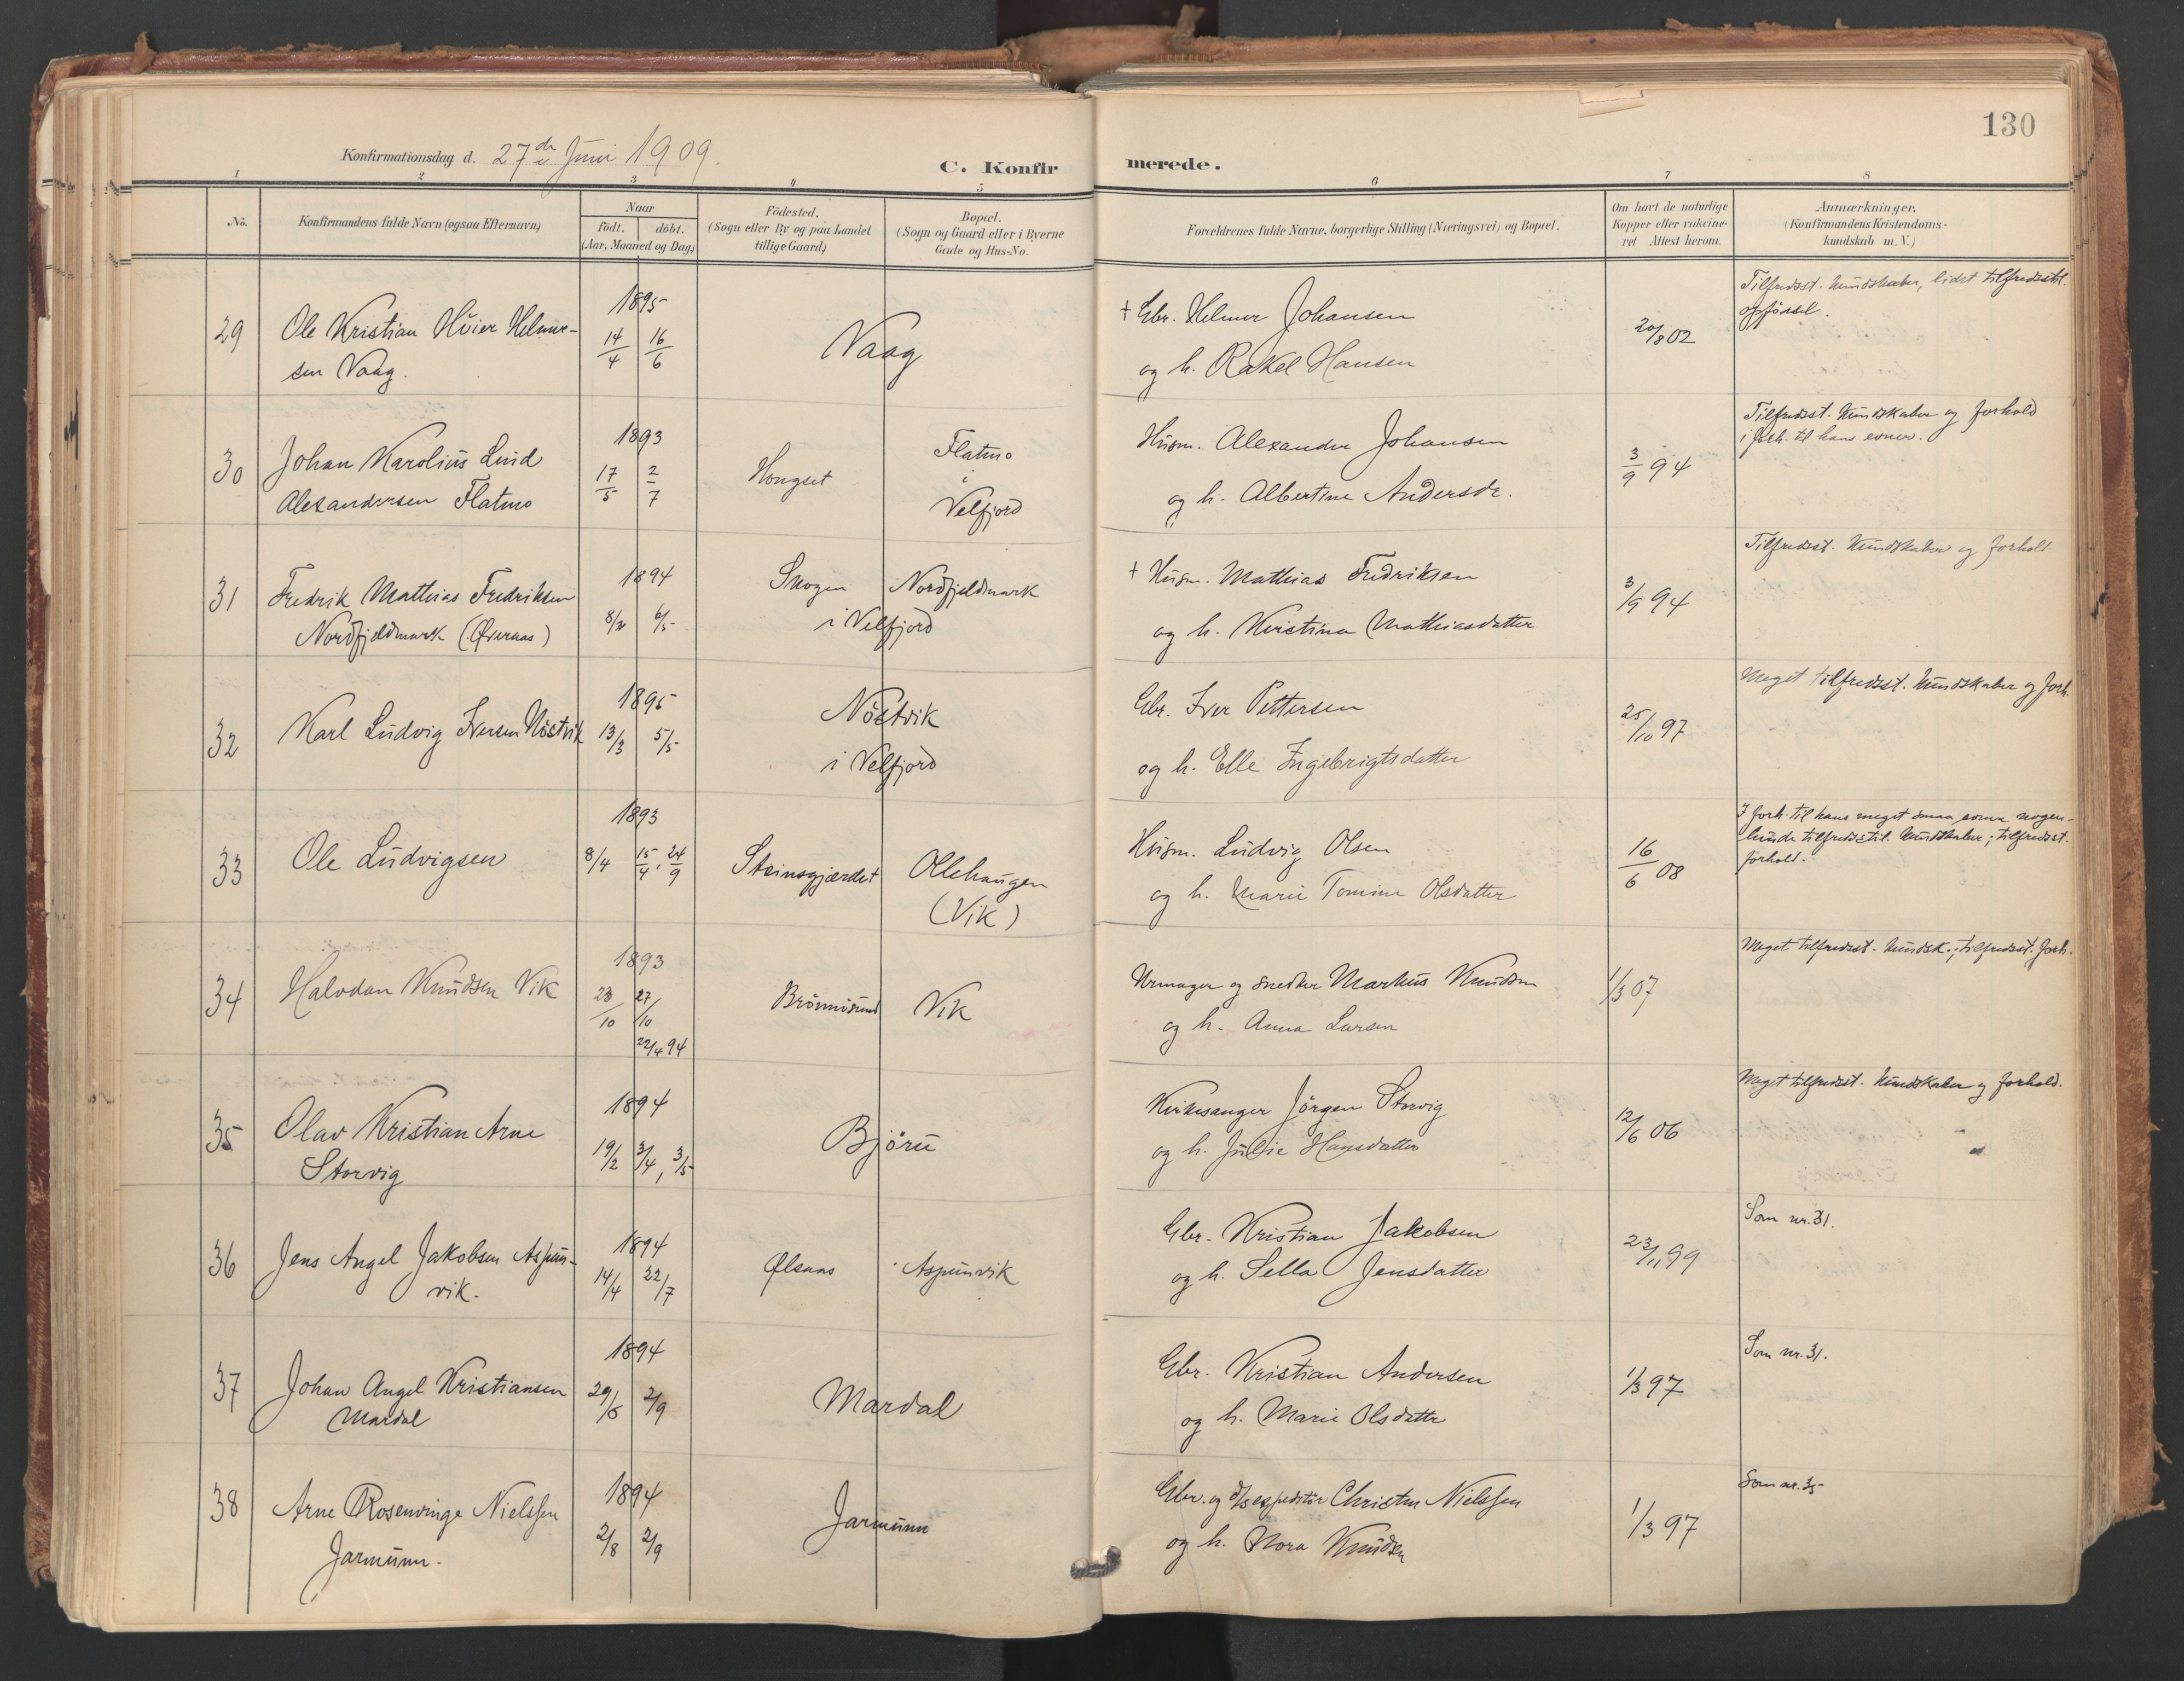 130
Konfirmationsdag d. 27de Juni 1909.
C. Konfirmerede.
1 2 3 4 5 6 7 8
No.
Konfirmandens fulde Navn (ogsaa Efternavn)
Naar
födt. döbt.
(Aar, Maaned og Dag)
Födested.
(Sogn eller By og paa Landet
tillige Gaard)
Bopæl.
(Sogn og Gaard eller i Byerne
Gade og Hus-No.
Forældrenes fulde Navne, borgerlige Stilling (Næringsvei) og Bopæl.
Om havt de naturlige
Kopper eller vakcine-
ret Attest herom.
Anmærkninger,
(Konfirmandens Kristendoms-
kundskab m. V.)
29 Ole Kristian Höier Helmer-
sen Vaag.
1895
14/4 16/6
Vaag
+ Gbr. Helmer Johansen
og h. Rakel Hansen
20/8 02
Tilfredsst. kundskaber, lidet tilfredsstil.
opförsel.
30 Johan Karolius Lind
Alexandersen Flatmo
1893
17/5 2/7
Hongset
Flatmo
i
Velfjord
Husm. Alexander Johansen
og h. Albertine Andersdr.
3/9 94
Tilfredsst. kundskaber og forhold
i forh. til hans evner.
31 Fredrik Mathias Fredriksen
Nordfjeldmark (Øvernes)
1894
6/5
Skogen Nordfjeldmark
i Velfjord
+ Husm. Mathias Fredriksen
og h. Kristina Mathiasdatter
3/9 94
Tilfredsst. kundskaber og forhold.
32 Karl Ludvig Iversen Nöstvik
1895
13/3 5/5
Nöstvik
i Velfjord
Gbr. Iver Pettersen
og h. Elle Ingebrigtsdatter
25/10 97
Meget tilfredsst. kundskaber og forh.
33 Ole Ludvigsen
1893
8/4 15/4, 24/9
Steinsgjærdet
Ollehaugen
(Vik)
Husm. Ludvig Olsen
og h. Marie Tomine Olsdatter
16/6 08
I forh. til hans meget smaa evner nogen-
lunde tilfredsstil. kundskaber; tilfredsst.
forhold.
34 Halvdan Knudsen Vik
1893
23/10 27/10
22/4 94
Brönnösund Vik
Urmager og snedker Markus Knudsen
og h. Anna Larsen
1/3 07
Meget tilfredsst. kundsk.; tilfredsst. forh.
35 Olav Kristian Arne
Storvig
1894
19/2 3/4, 3/5
Björu
Kirkesanger Jörgen Storvig
og h. Julie Hansdatter
12/6 06
Meget tilfredsst. kundskaber og forhold.
36 Jens Angel Jakobsen Aspun-
vik.
1894
14/4 22/7
Ølsaas Aspunvik
Gbr. Kristian Jakobsen
og h. Sella Jensdatter
23/11 99
Som nr. 31.
37 Johan Angel Kristiansen
Mardal
1894
29/6 2/9
Mardal
Gbr. Kristian Andersen
og h. Marie Olsdatter
1/3 97
Som nr. 31.
38 Arne Rosenvinge Nielsen
Jarmunn.
1894
2/8 2/9
Jarmunn
Gbr. og d/s expeditör Christen Nielssen
og h. Nora Knudsen
1/3 97
Som nr. 35